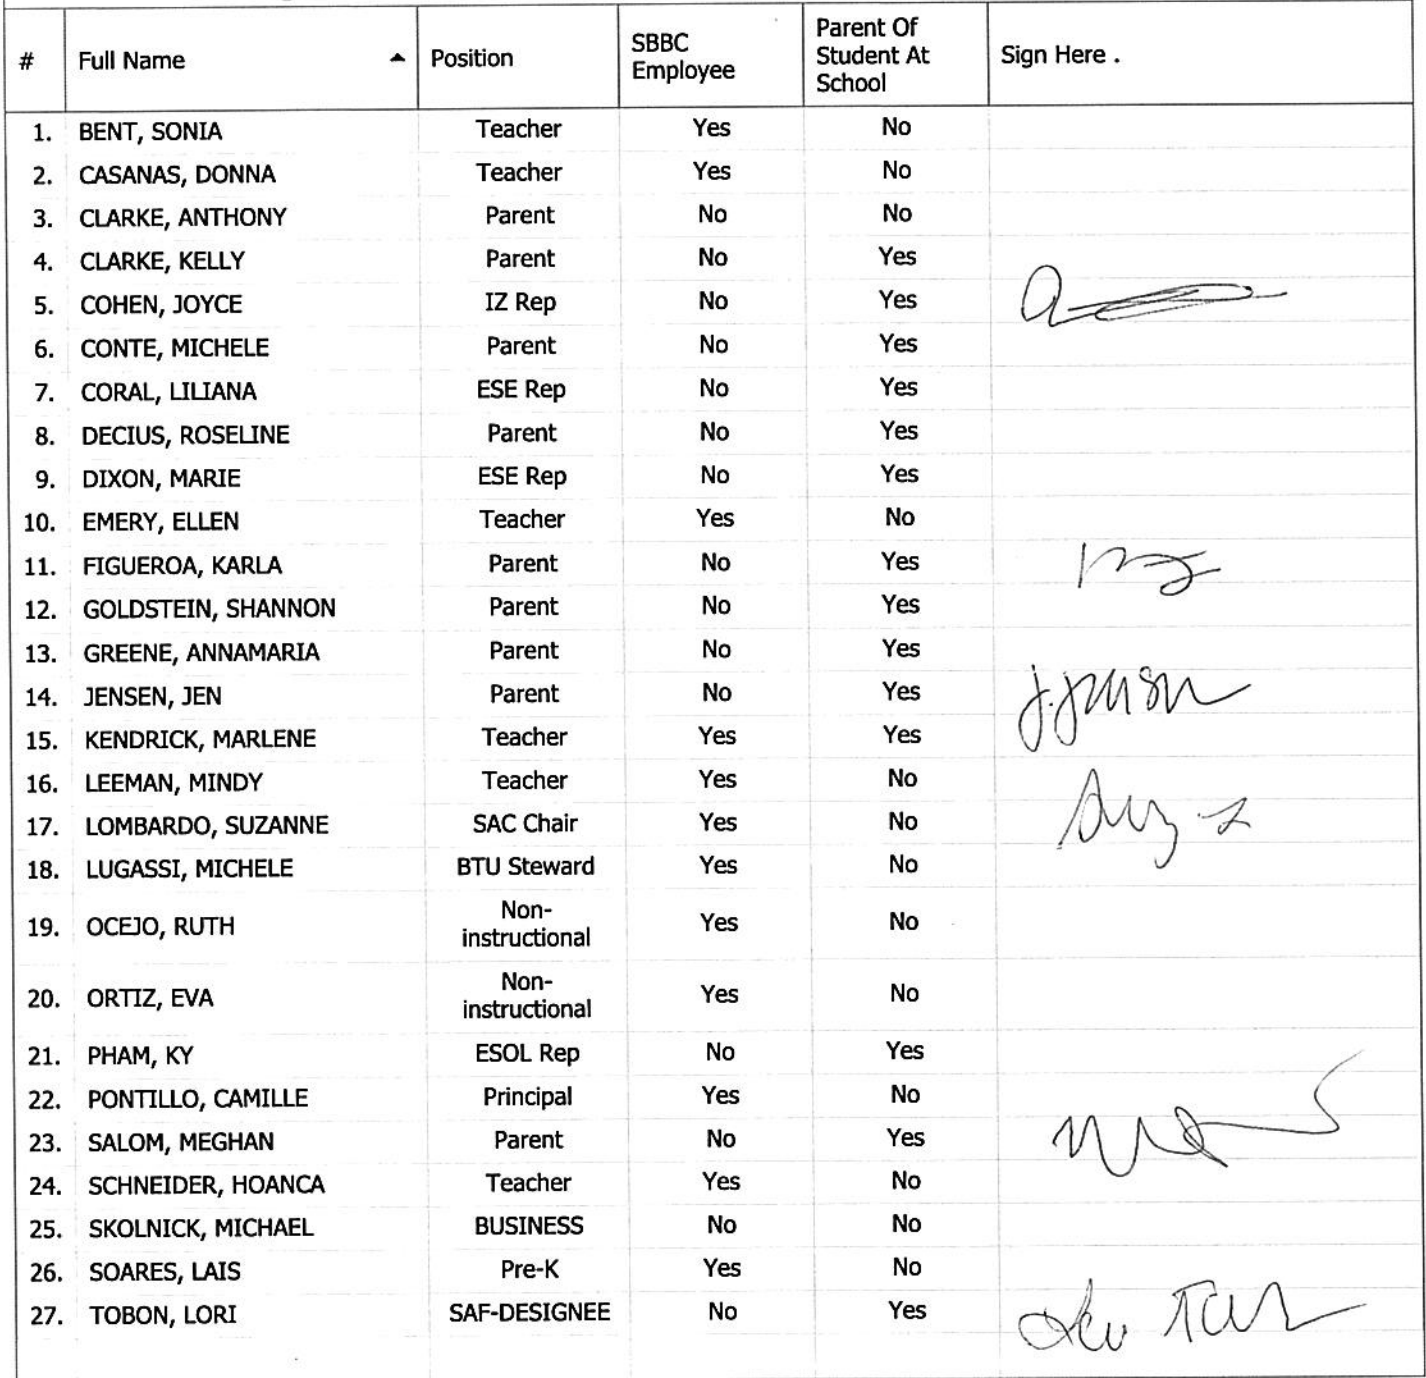 # Full Name ▲ Position SBBC Employee Parent Of Student At School Sign Here .
1. BENT, SONIA Teacher Yes No
2. CASANAS, DONNA Teacher Yes No
3. CLARKE, ANTHONY Parent No No
4. CLARKE, KELLY Parent No Yes
5. COHEN, JOYCE IZ Rep No Yes
6. CONTE, MICHELE Parent No Yes
7. CORAL, LILIANA ESE Rep No Yes
8. DECIUS, ROSELINE Parent No Yes
9. DIXON, MARIE ESE Rep No Yes
10. EMERY, ELLEN Teacher Yes No
11. FIGUEROA, KARLA Parent No Yes
12. GOLDSTEIN, SHANNON Parent No Yes
13. GREENE, ANNAMARIA Parent No Yes
14. JENSEN, JEN Parent No Yes J. Jensen
15. KENDRICK, MARLENE Teacher Yes Yes
16. LEEMAN, MINDY Teacher Yes No
17. LOMBARDO, SUZANNE SAC Chair Yes No
18. LUGASSI, MICHELE BTU Steward Yes No
19. OCEJO, RUTH Non-instructional Yes No
20. ORTIZ, EVA Non-instructional Yes No
21. PHAM, KY ESOL Rep No Yes
22. PONTILLO, CAMILLE Principal Yes No
23. SALOM, MEGHAN Parent No Yes
24. SCHNEIDER, HOANCA Teacher Yes No
25. SKOLNICK, MICHAEL BUSINESS No No
26. SOARES, LAIS Pre-K Yes No
27. TOBON, LORI SAF-DESIGNEE No Yes